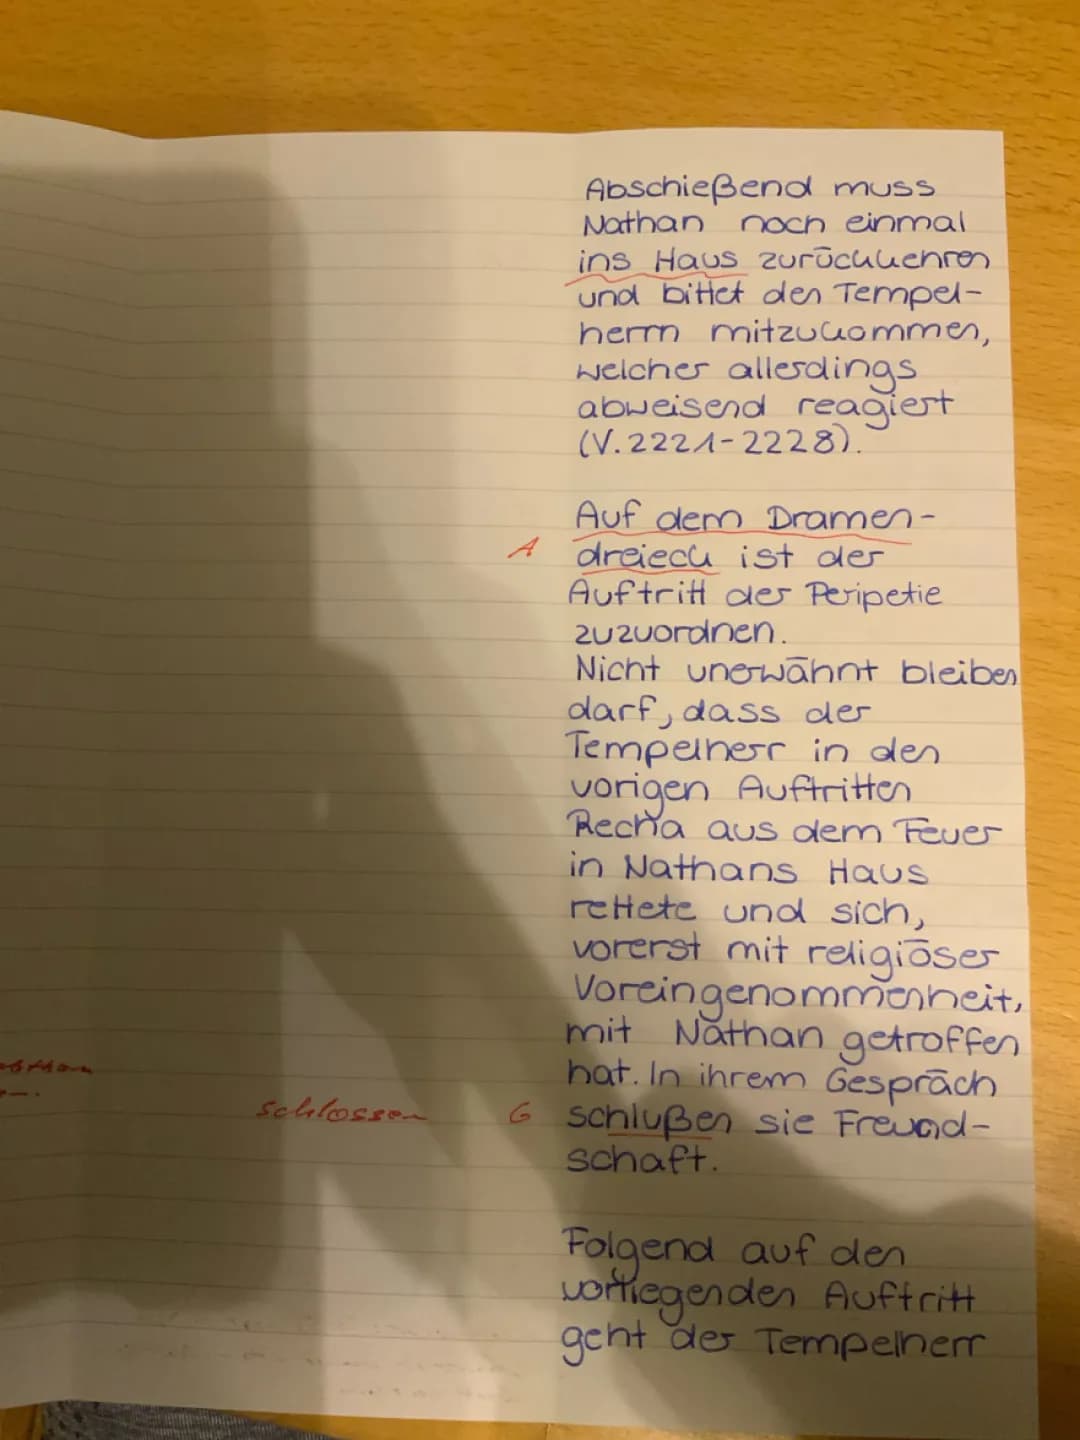 Abschießend muss
Nathan noch einmal
ins Haus zurückkehren
und bittet den Tempel-
herrn mitzukommen,
welcher allerdings
abweisend reagiert
(V. 2221-2228).
Auf dem Dramen-
A dreieck ist der
Auftritt der Peripetie
zuzuordnen.
Nicht unerwähnt bleiben
darf, dass der
Tempelherr in den
vorigen Auftritten
Recha aus dem Feuer
in Nathans Haus
rettete und sich,
vorerst mit religiöser
Voreingenommenheit,
mit Nathan getroffen
hat. In ihrem Gespräch
schlossen G schlußen sie Freund-
schaft.
Folgend auf den
vorliegenden Auftritt
geht der Tempelherr